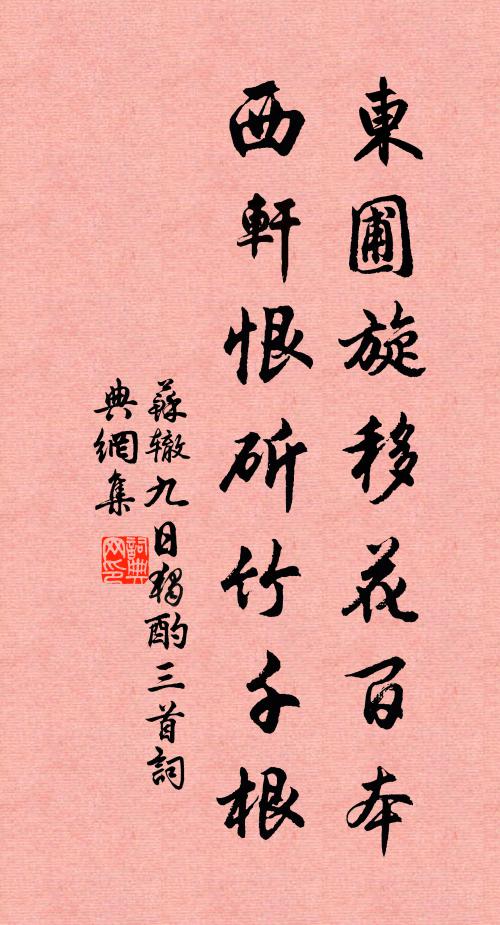 東圃旋移花百本
西軒恨斫竹千根
蘇辙九日獨酌三首詞
典網集
詞典
网印